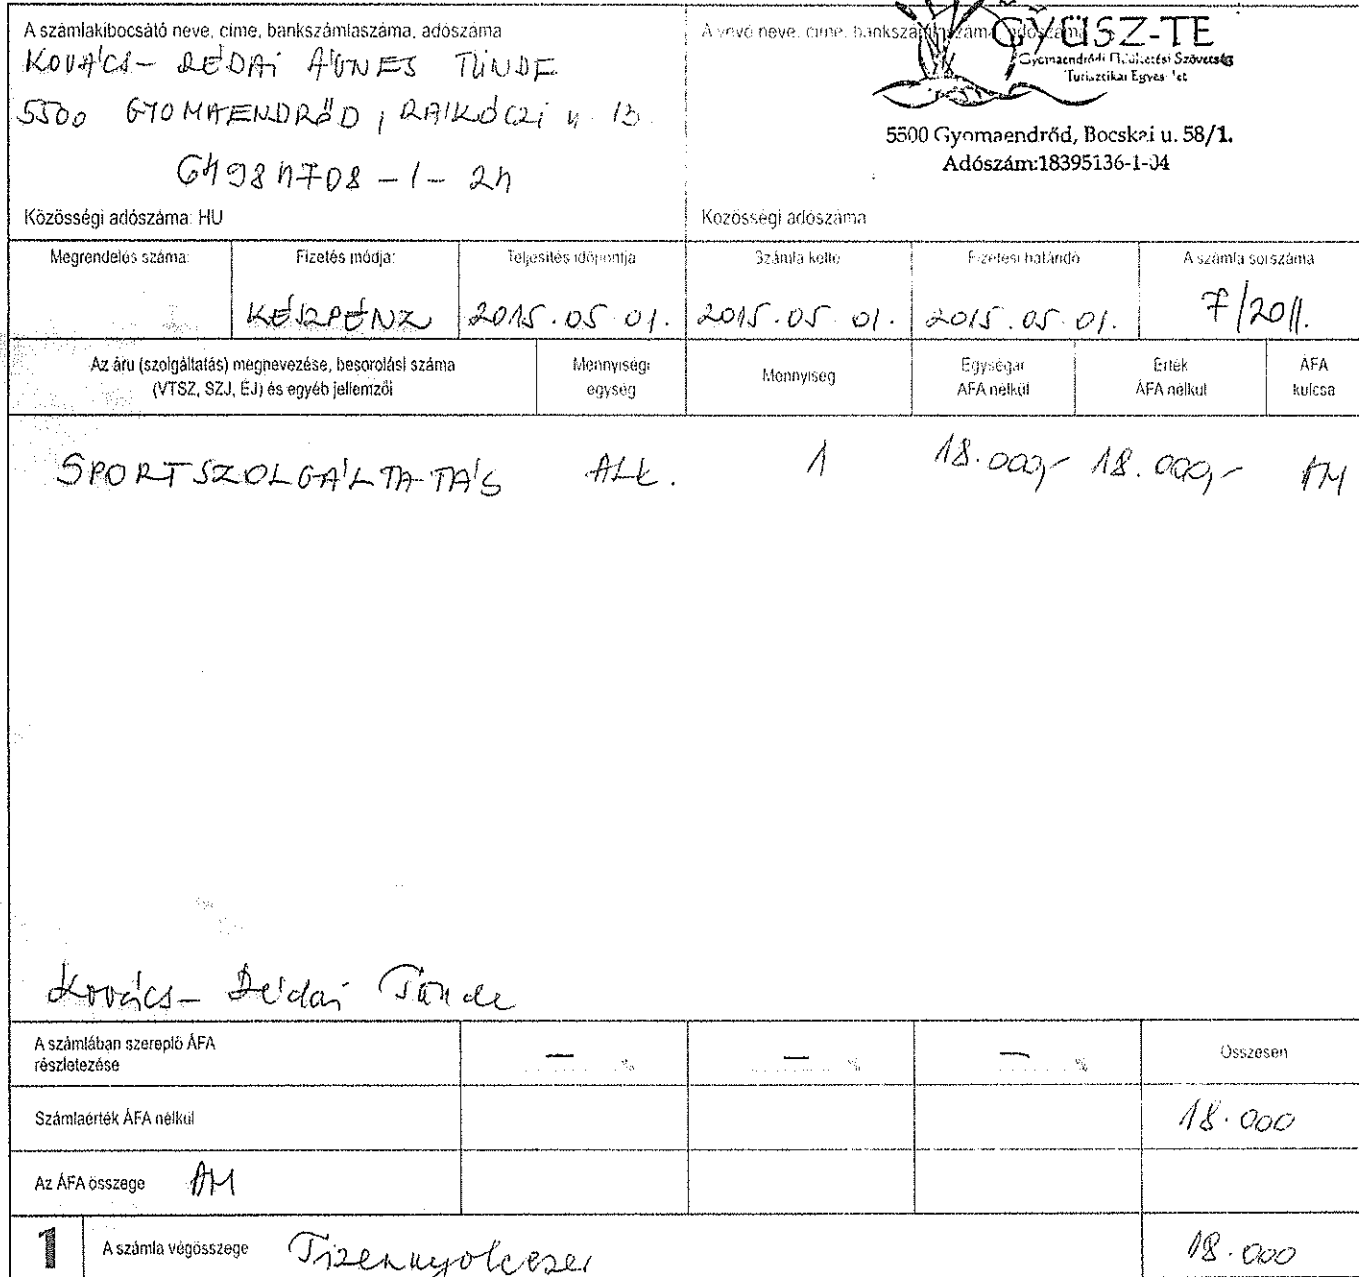 A számlakibocsátó neve, címe, bankszámlaszáma, adószáma
KOVÁCS- RÉDAI ÁGNES TÜNDE
5500 GYOMAENDRŐD, RÁKÓCZI u. 13.
64984708-1-24
Közösségi adószáma: HU
A vevő neve, címe, bankszámlaszáma, adószáma
GYÜSZ-TE
Gyomaendrődi Üdültetési Szövetség
Turisztikai Egyesület
5500 Gyomaendrőd, Bocskai u. 58/1.
Adószám:18395136-1-04
Közösségi adószáma
Megrendelés száma: Fizetés módja: Teljesítés időpontja Számla kelte Fizetési határidő A számla sorszáma
KÉSZPÉNZ 2015.05.01. 2015.05.01. 2015.05.01. 7/2011.
Az áru (szolgáltatás) megnevezése, besorolási száma Mennyiségi Mennyiség Egységár Érték ÁFA
(VTSZ, SZJ, ÉJ) és egyéb jellemzői egység ÁFA nélkül ÁFA nélkül kulcsa
SPORTSZOLGÁLTATÁS ALK. 1 18.000,- 18.000,- AM
Kovács- Rédai Tünde
A számlában szereplő ÁFA — % — % — % Összesen
részletezése
Számlaérték ÁFA nélkül 18.000
Az ÁFA összege AM
1 A számla végösszege Tizennyolcezer 18.000